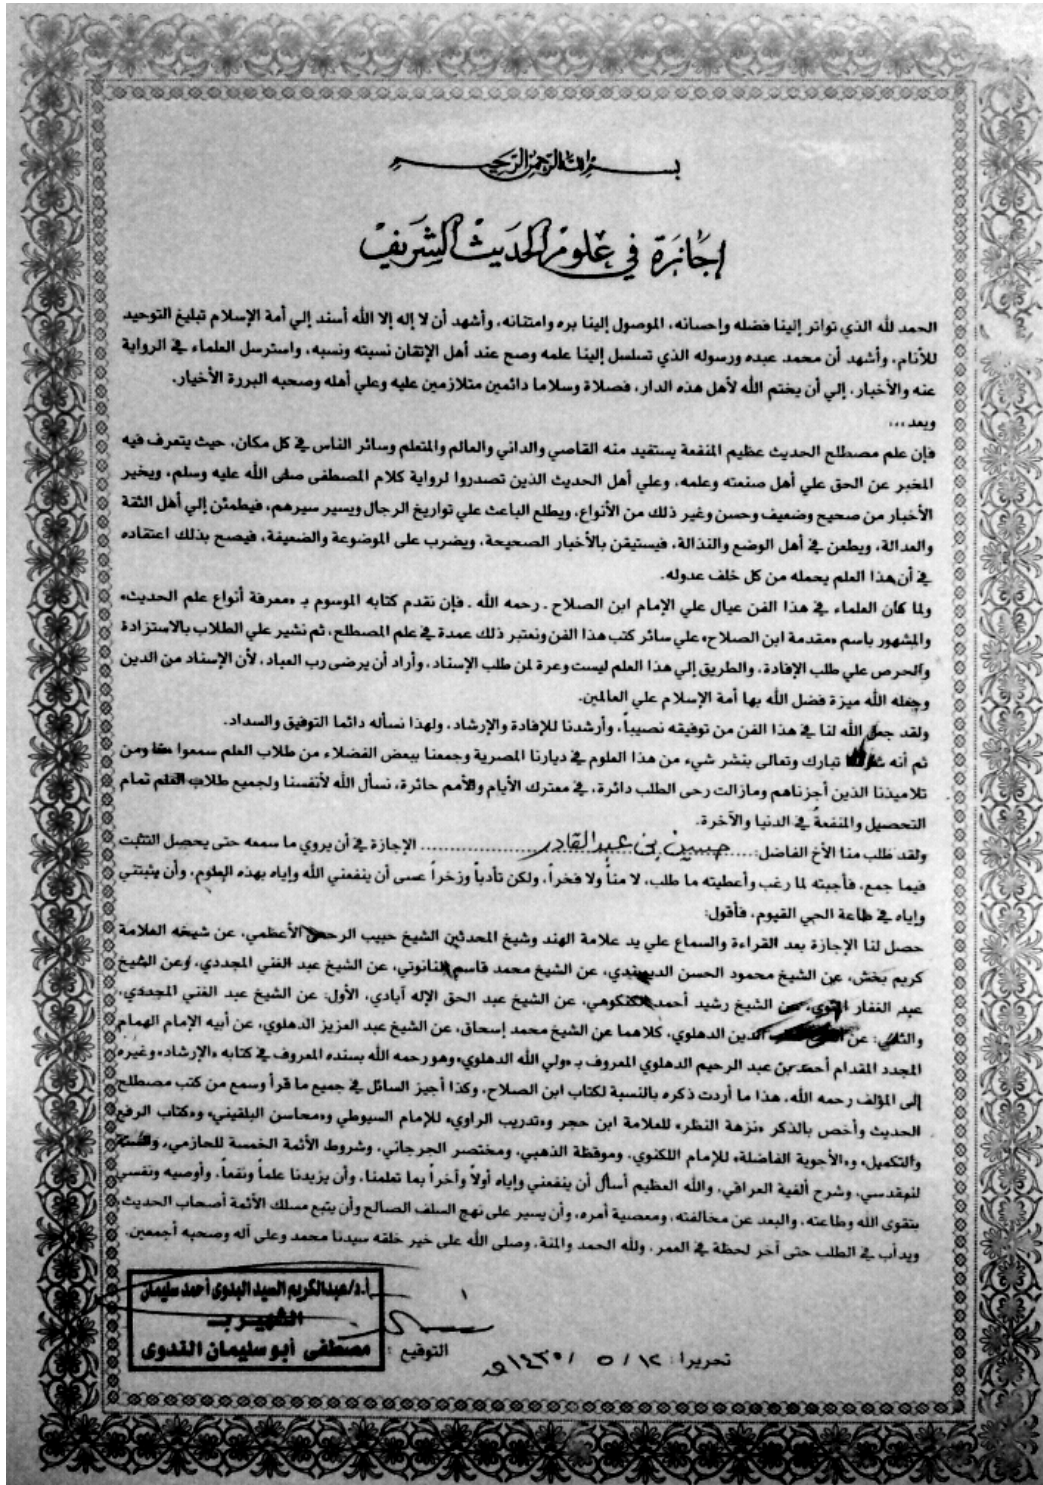 بسم الله الرحمن الرحيم
إجازة في علوم الحديث الشريف
الحمد لله الذي تواتر إلينا فضله وإحسانه، الموصول إلينا بره وامتنانه، وأشهد أن لا إله إلا الله أسند إلي أمة الإسلام تبليغ التوحيد
للأنام، وأشهد أن محمد عبده ورسوله الذي تسلسل إلينا علمه وصح عند أهل الإتقان نسبته ونسبه، واسترسل العلماء في الرواية
عنه والأخبار، إلي أن يختم الله لأهل هذه الدار، فصلاة وسلاما دائمين متلازمين عليه وعلي أهله وصحبه البررة الأخيار.
وبعد...
فإن علم مصطلح الحديث عظيم المنفعة يستفيد منه القاصي والداني والعالم والمتعلم وسائر الناس في كل مكان، حيث يتعرف فيه
المخبر عن الحق علي أهل صنعته وعلمه، وعلي أهل الحديث الذين تصدروا لرواية كلام المصطفى صلى الله عليه وسلم، ويخير
الأخبار من صحيح وضعيف وحسن وغير ذلك من الأنواع، ويطلع الباعث علي تواريخ الرجال ويسير سيرهم، فيطمئن إلي أهل الثقة
والعدالة، ويطعن في أهل الوضع والنذالة، فيستيقن بالأخبار الصحيحة، ويضرب على الموضوعة والضعيفة، فيصح بذلك اعتقاده
في أن هذا العلم يحمله من كل خلف عدوله.
ولما كان العلماء في هذا الفن عيال علي الإمام ابن الصلاح . رحمه الله . فإن نقدم كتابه الموسوم بـ «معرفة أنواع علم الحديث»
والمشهور باسم «مقدمة ابن الصلاح» علي سائر كتب هذا الفن ونعتبر ذلك عمدة في علم المصطلح، ثم نشير علي الطلاب بالاستزادة
والحرص علي طلب الإفادة، والطريق إلي هذا العلم ليست وعرة لمن طلب الإسناد، وأراد أن يرضى رب العباد، لأن الإسناد من الدين
وجعله الله ميزة فضل الله بها أمة الإسلام علي العالمين.
ولقد جعل الله لنا في هذا الفن من توفيقه نصيباً، وأرشدنا للإفادة والإرشاد، ولهذا نسأله دائما التوفيق والسداد.
ثم أنه تبارك وتعالى بنشر شيء من هذا العلوم في ديارنا المصرية وجمعنا ببعض الفضلاء من طلاب العلم سمعوا منا ومن
تلاميذنا الذين أجزناهم ومازالت رحى الطلب دائرة، في معترك الأيام والأمم حائرة، نسأل الله لأنفسنا ولجميع طلاب العلم تمام
التحصيل والمنفعة في الدنيا والآخرة.
ولقد طلب منا الأخ الفاضل: حسين بن عبد القادر الإجازة في أن يروي ما سمعه حتى يحصل التثبت
فيما جمع، فأجبته لما رغب وأعطيته ما طلب، لا مناً ولا فخراً، ولكن تأدباً وزخراً عسى أن ينفعني الله وإياه بهذه العلوم، وأن يثبتني
وإياه في طاعة الحي القيوم، فأقول:
حصل لنا الإجازة بعد القراءة والسماع علي يد علامة الهند وشيخ المحدثين الشيخ حبيب الرحمن الأعظمي، عن شيخه العلامة
كريم بخش، عن الشيخ محمود الحسن الديوبندي، عن الشيخ محمد قاسم النانوتي، عن الشيخ عبد الغني المجددي، وعن الشيخ
عبد الغفار عن الشيخ رشيد أحمد الكنكوهي، عن الشيخ عبد الحق الإله آبادي، الأول: عن الشيخ عبد الغني المجددي،
والثاني: عن الدين الدهلوي، كلاهما عن الشيخ محمد إسحاق، عن الشيخ عبد العزيز الدهلوي، عن أبيه الإمام الهمام
المجدد المقدام أحمد بن عبد الرحيم الدهلوي المعروف بـ «ولي الله الدهلوي» وهو رحمه الله بسنده المعروف في كتابه «الإرشاد» وغيره
إلى المؤلف رحمه الله، هذا ما أردت ذكره بالنسبة لكتاب ابن الصلاح، وكذا أجيز السائل في جميع ما قرأ وسمع من كتب مصطلح
الحديث وأخص بالذكر «نزهة النظر» للعلامة ابن حجر و«تدريب الراوي» للإمام السيوطي و«محاسن البلقيني» و«كتاب الرفع
والتكميل» و«الأجوبة الفاضلة» للإمام اللكنوي، وموقظة الذهبي، ومختصر الجرجاني، وشروط الأئمة الخمسة للحازمي، والستة
للمقدسي، وشرح ألفية العراقي، والله العظيم أسأل أن ينفعني وإياه أولاً وأخراً بما تعلمنا، وأن يزيدنا علماً ونفعاً، وأوصيه ونفسي
بتقوى الله وطاعته، والبعد عن مخالفته، ومعصية أمره، وأن يسير على نهج السلف الصالح وأن يتبع مسلك الأئمة أصحاب الحديث،
ويدأب في الطلب حتى آخر لحظة في العمر، ولله الحمد والمنة، وصلى الله على خير خلقه سيدنا محمد وعلى آله وصحبه أجمعين.
أ.د/عبدالكريم السيد البدوى أحمد سليمان
الشهير بـ
مصطفى أبو سليمان الندوى
التوقيع :
تحريرا : ١٢ / ٥ / ١٤٣٠هـ